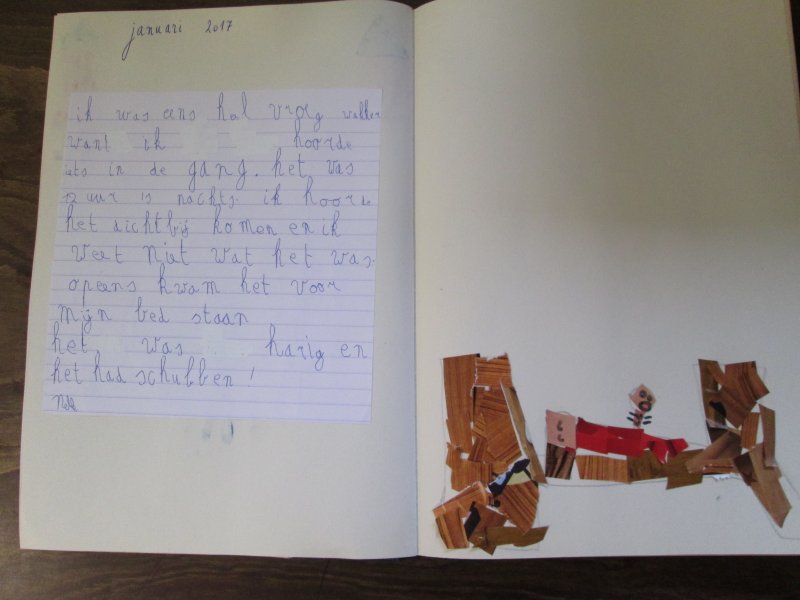 januari 2017
ik was eens hal vroeg wakker
want ik hoorde
iets in de gang. het was
12 uur 's nachts. ik hoorde
het dichtbij komen en ik
weet niet wat het was.
opeens kwam het voor
mijn bed staan
het was harig en
het had schubben!